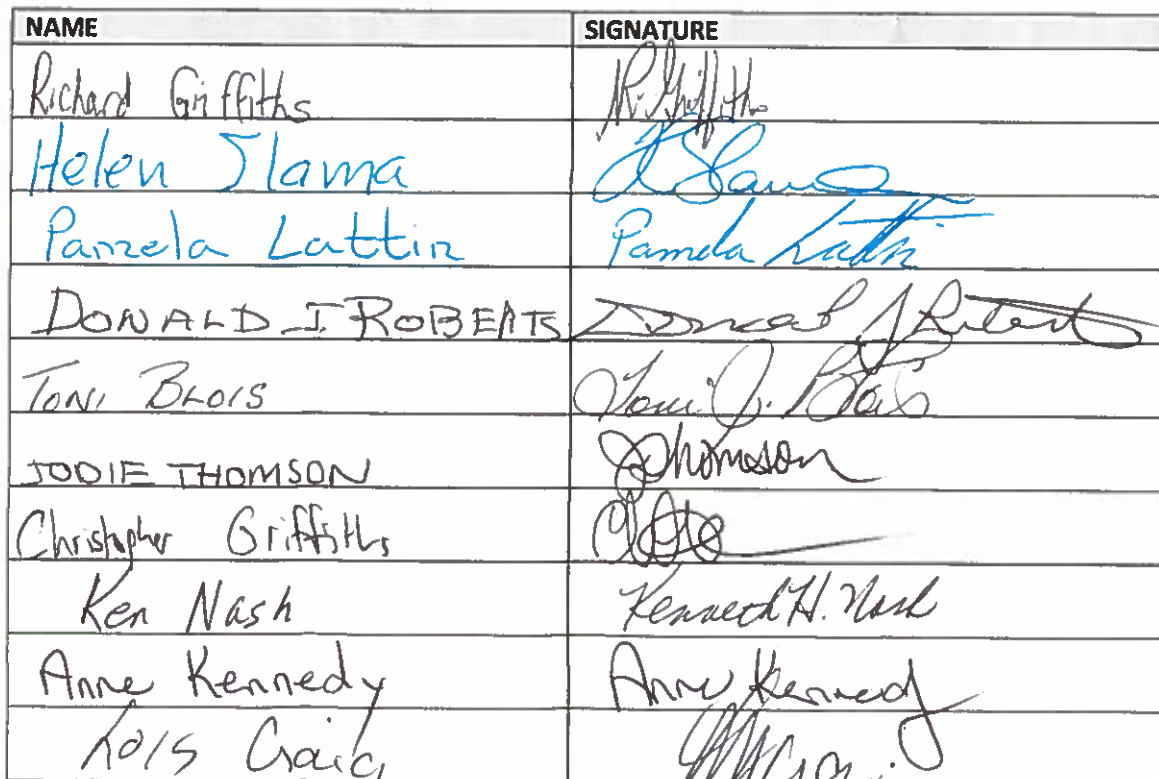 NAME SIGNATURE
Richard Griffiths R. Griffiths
Helen Slama H Slama
Pamela Lattin Pamela Lattin
DONALD J ROBERTS Donald J Roberts
TONI BLOIS Toni J. Blois
JODIE THOMSON JThomson
Christopher Griffiths
Ken Nash Kenneth H. Nash
Anne Kennedy Anne Kennedy
Lois Craig Craig